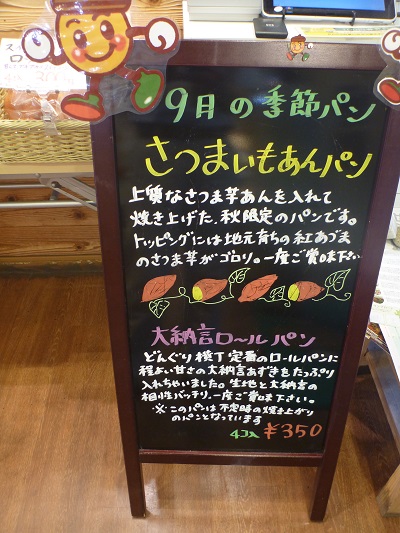 9月の季節パン
さつまいもあんパン
上質なさつま芋あんを入れて
焼き上げた、秋限定のパンです。
トッピングには地元育ちの紅あづま
のさつま芋がゴロリ。一度ご賞味下さい
大納言ロールパン
どんぐり横丁定番のロールパンに
程よい甘さの大納言あずきをたっぷり
入れちゃいました。生地と大納言の
相性バッチリ、一度ご賞味下さい。
※このパンは不定時の焼き上がり
のパンとなっています
4コ入 ¥350